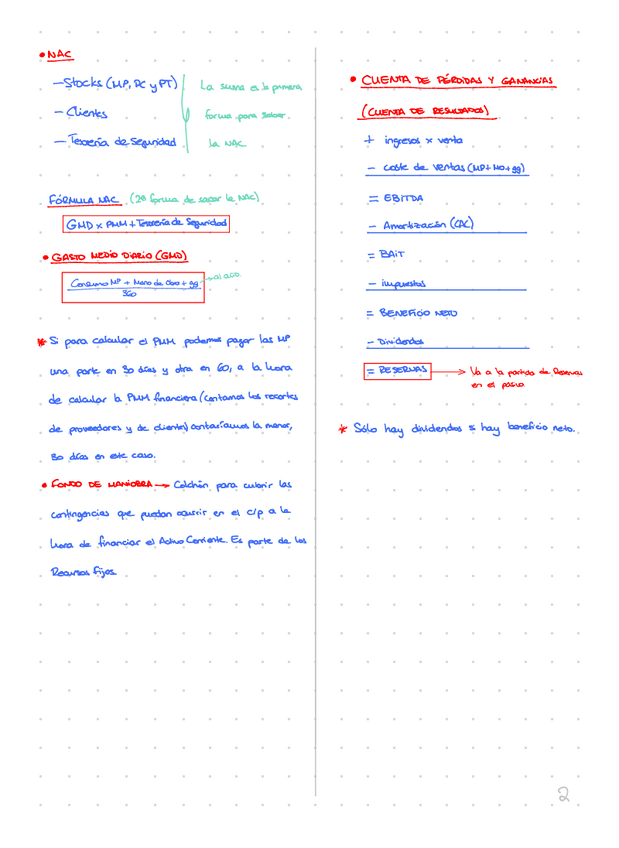 • NAC
— Stocks (MP, PC y PT)
— Clientes
— Tesorería de Seguridad
La suma es la primera
forma para saber
la NAC
FÓRMULA NAC (2ª forma de sacar la NAC)
GMD x PMM + Tesorería de Seguridad
• GASTO MEDIO DIARIO (GMD)
Consumo MP + Mano de Obra + gg → al año
360
* Si para calcular el PMM podemos pagar las MP
una parte en 30 días y otra en 60, a la hora
de calcular la PMM financiera (contamos los recortes
de proveedores y de clientes) contaríamos la menor,
30 días en este caso.
• FONDO DE MANIOBRA → Colchón para cubrir las
contingencias que puedan ocurrir en el c/p a la
hora de financiar el Activo Corriente. Es parte de los
Recursos fijos
• CUENTA DE PÉRDIDAS Y GANANCIAS
(CUENTA DE RESULTADOS)
+ ingresos x venta
— coste de ventas (MP + MO + gg)
= EBITDA
— Amortización (CAC)
= BAIT
— impuestos
= BENEFICIO NETO
— Dividendos
= RESERVAS → Va a la partida de Reservas
en el pasivo
* Sólo hay dividendos si hay beneficio neto.
2